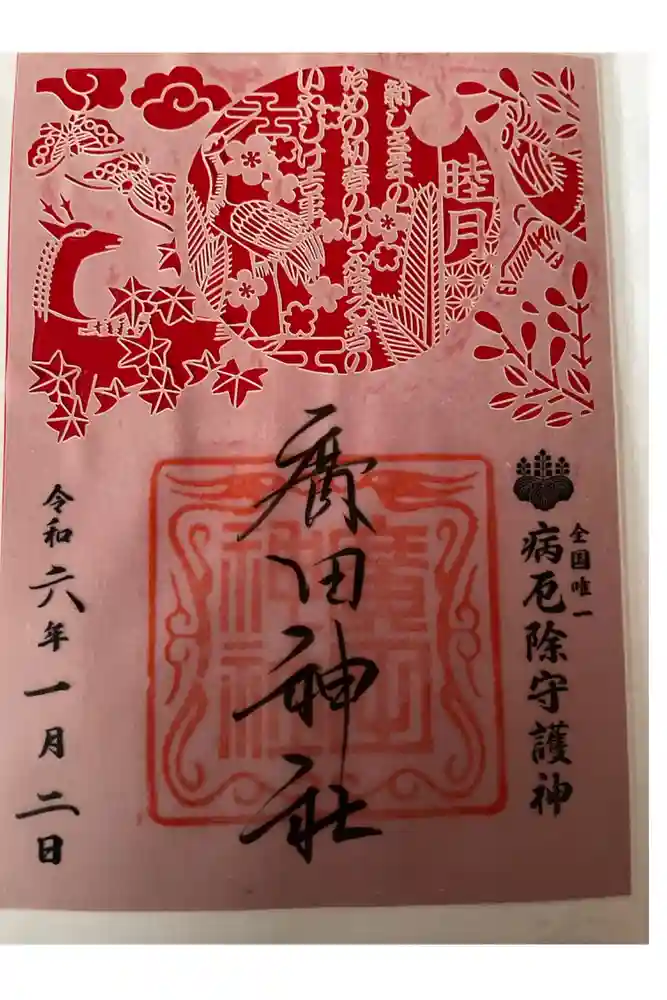 睦月
新しき年の
始めの初春のけふ降る雪の
いやしけ吉事
全国唯一
病厄除守護神
廣田神社
廣田
神社
令和六年一月二日